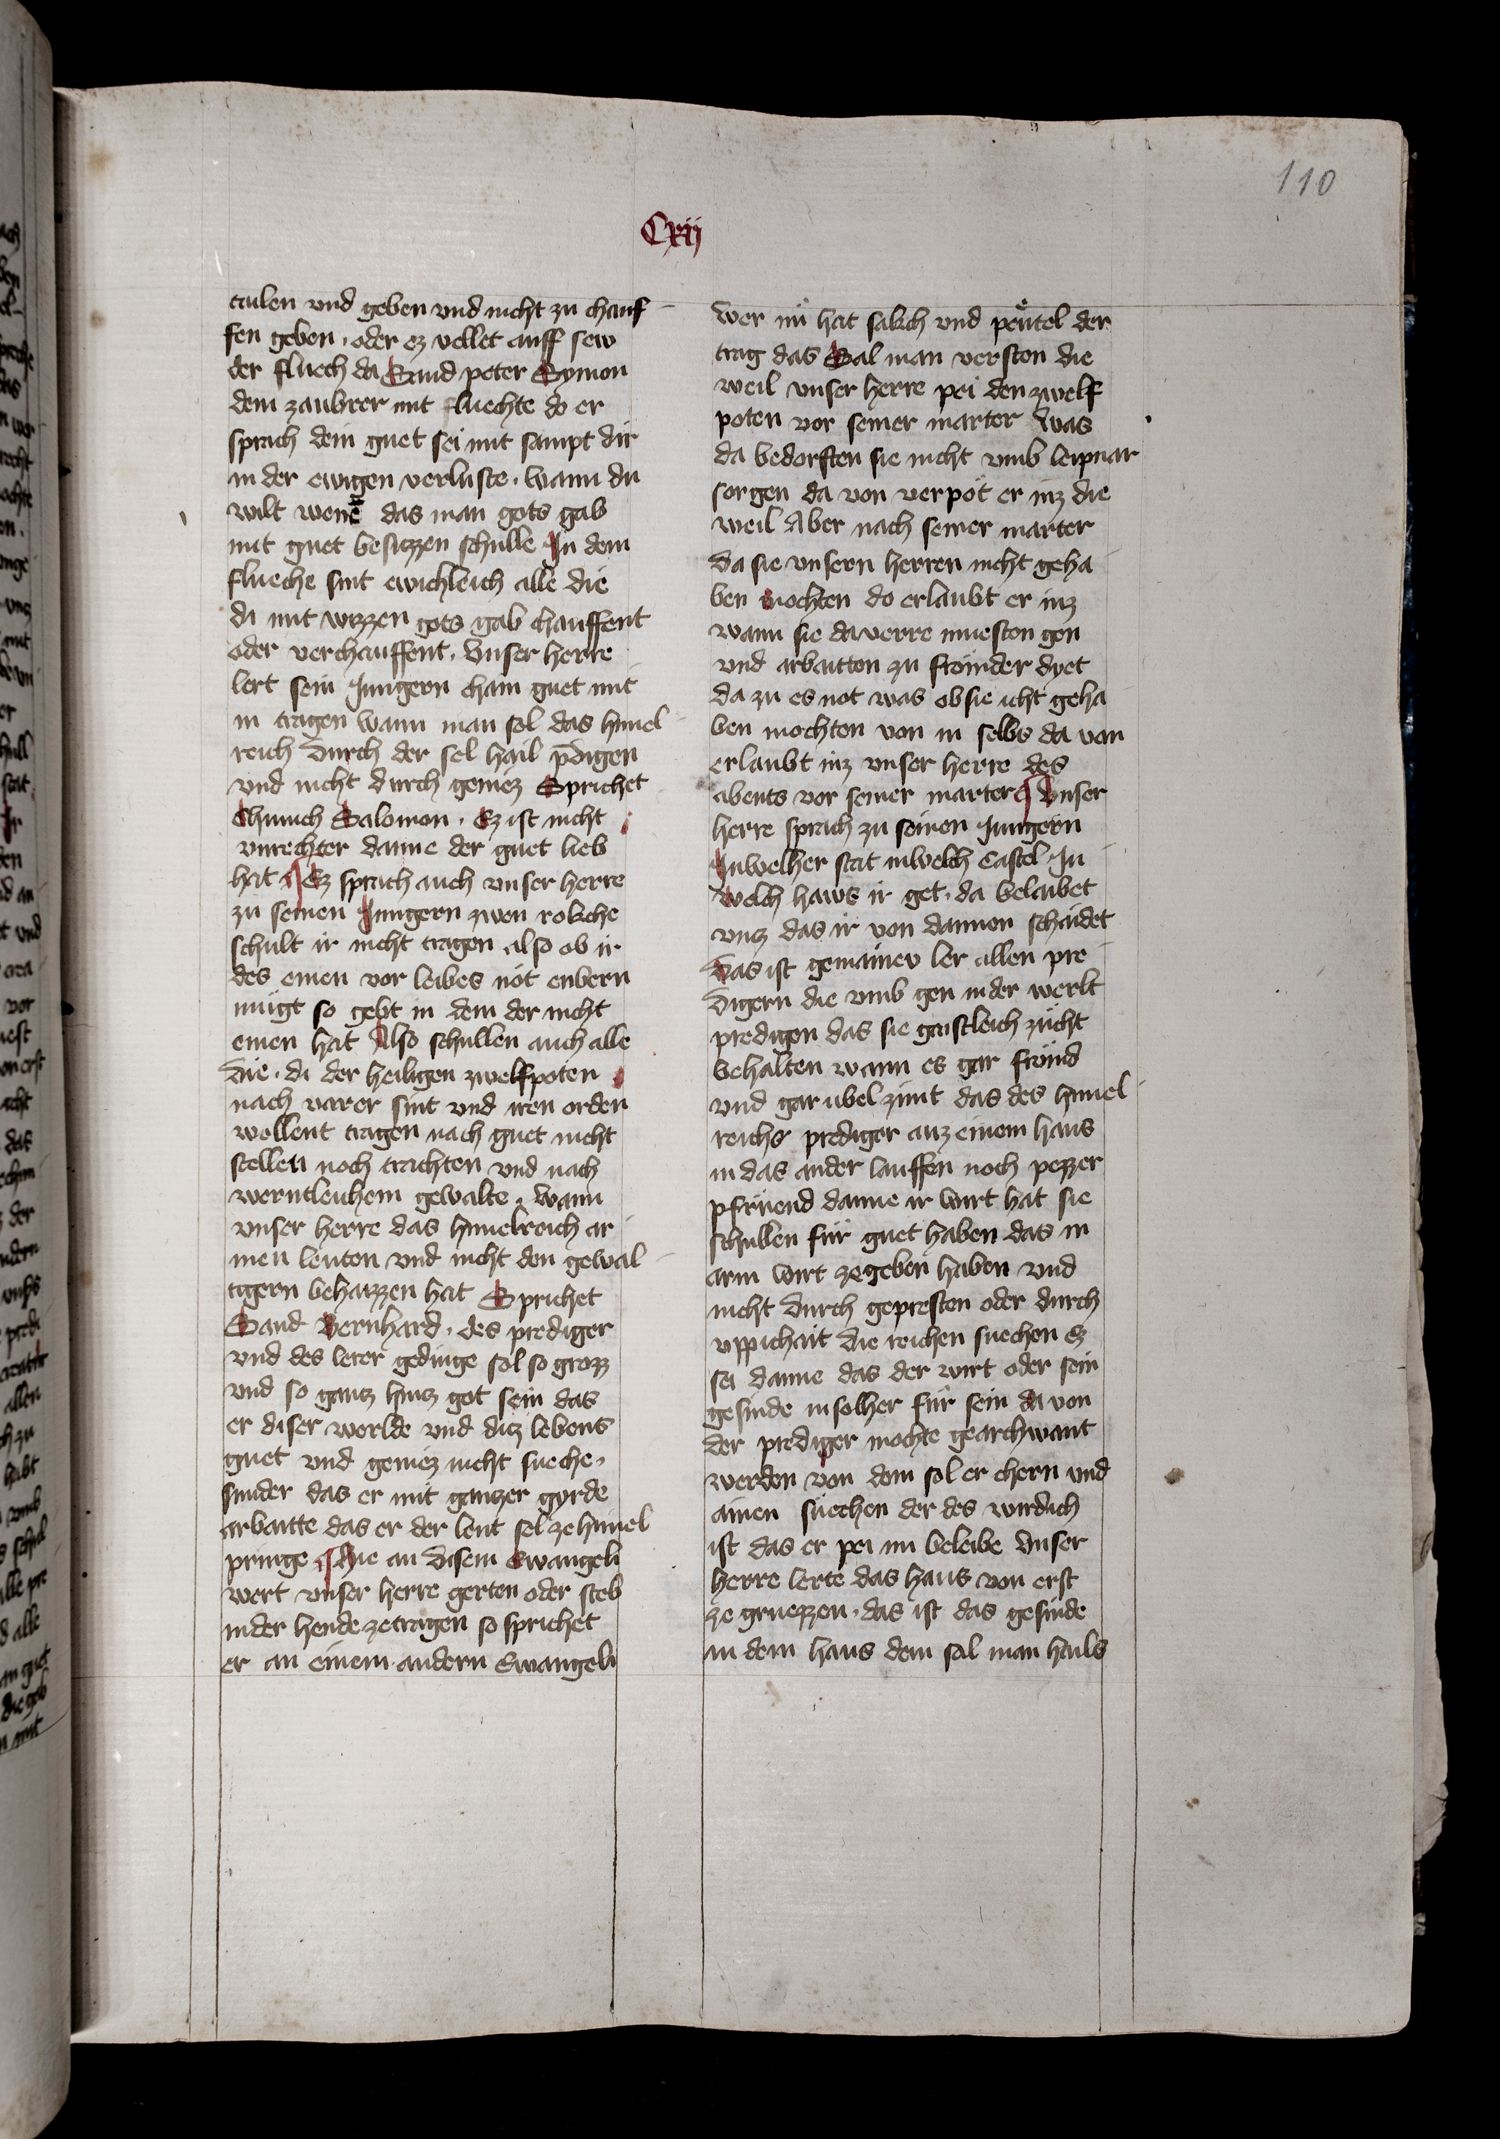 110
Cxij
tailen vnd geben vnd nicht zu chauf
fen geben · oder ez vellet auff sew
der fluech da Sand peter Symon
dem zaubrer mit fluechte do er
sprach dein guet sei mit sampt dir
in der ewigen verluste · wann du
wilt wenē das man gots gab
mit guet besiczzen schulle In dem
flueche sint ewichleich alle die
di mit wizzen gots gab chauffent
oder verchauffent · Vnser herre
lert sein Jungern chain guet mit
in tragen wann man sol das himel
reich durch der sel hail p̄digen
vnd nicht durch geniez Sprichet
Chunich Salomon · Ez ist nicht
vnrechter danne der guet lieb
hat ¶ Ez sprach auch vnser herre
zu seinen Jungern zwen rokche
schult ir nicht tragen also ob ir
des einen vor leibes nöt enbern
mügt so gebt in dem der nicht
einen hat Also schullen auch alle
die · di der heiligen zwelfpoten
nach varer sint vnd iren orden
wollent tragen nach guet nicht
stellen noch trachten vnd nach
werntleichem gewalte · wann
vnser herre das himelreich ar
men leuten vnd nicht den gewal
tigern behaizzen hat Sprichet
Sand Bernhard · des prediger
vnd des lerer gedinge sol so grozz
vnd so gancz hincz got sein das
er diser werlde vnd dicz lebens
guet vnd geniez nicht sueche ·
sunder das er mit ganczer gyrde
arbaitte das er der leut sel ze himel
pringe ¶ Hie an disem Ewangeli
wert vnser herre gerten oder steb
in der hende ze tragen so sprichet
er an einem andern Ewangeli
wer nů hat sakch vnd peůtel der
trag das Sal man versten die
weil vnser herre pei den zwelf
poten vor seiner marter was
da bedorften sie nicht vmb leipnar
sorgen da von verpot er inz die
weil Aber nach seiner marter
da sie vnsern herren nicht geha
ben mochten do erlaubt er inz
wann sie da verre muesten gen
vnd arbaitten zu frömder dyet
da zu es not was ob sie icht geha
ben mochten von in selbs da von
erlaubt inz vnser herre des
abents vor seiner marter ¶ Vnser
herre sprach zu seinen Jungern
In welher stat in welch Castel In
welch haws ir get · da beleibet
vncz das ir von dannen schaidet
Das ist gemainev ler allen pre
digern die vmb gen in der werlt
predigen das sie gaistleich zücht
behalten wann es gar frömd
vnd gar vbel zimt das des himel
reichs prediger auz einem haus
in das ander lauffen noch pezzer
pfrüend danne ir wirt hat sie
schullen für guet haben das in
arm wirt ze geben haben vnd
nicht durch gepresten oder durch
vppichait die reichen suechen Ez
sei danne das der wirt oder sein
gesinde in solher für sein da von
der prediger mochte gearchwant
werden von dem sol er chern vnd
ainen süechen der des wirdich
ist das er pei im beleibe Vnser
herre lerte das haus von erst
ze gruezzen · das ist das gesinde
in dem haus dem sol man hails